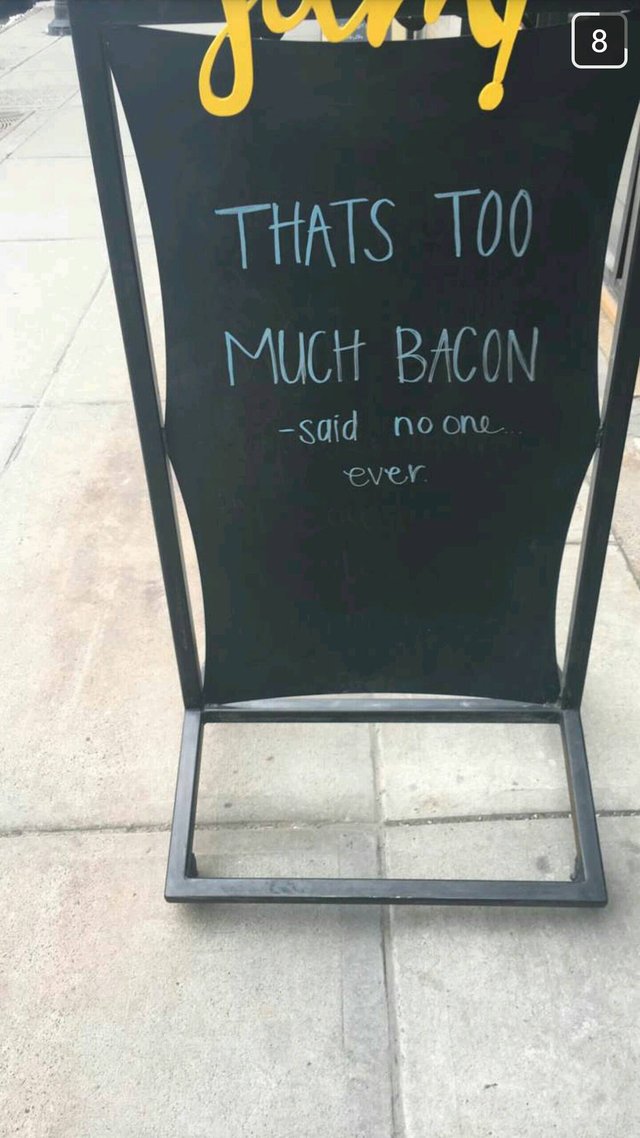 8
THATS TOO
MUCH BACON
-said no one...
ever.